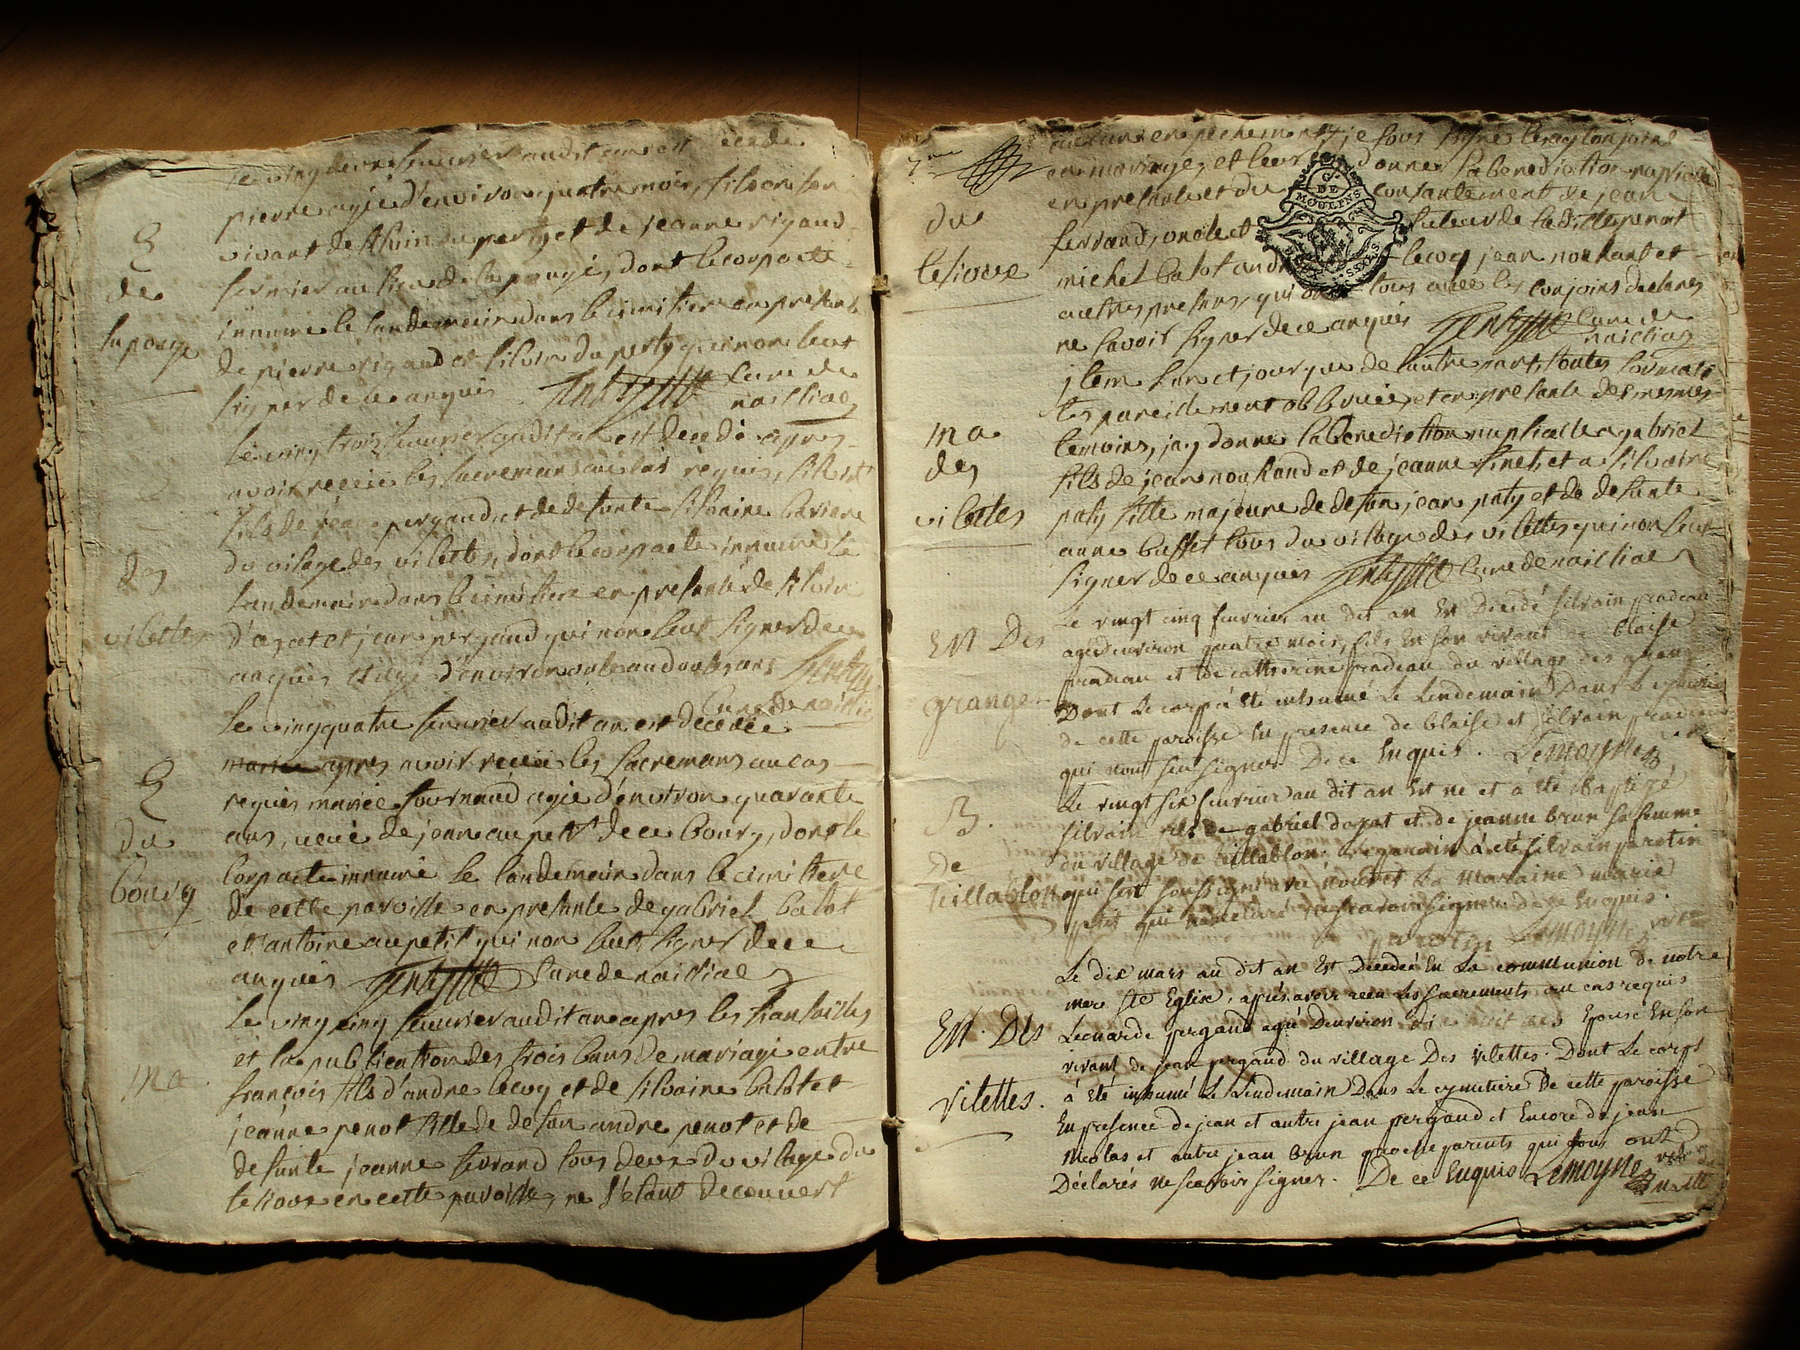 E
de
lapouge
le vingdeux feuurier audit an est decede
pierre agé d'environ quatre mois, fils en son
vivant de silvin duperty et de jeanne rigaud
fermier au lieu de lapouge, dont le corps a ete
innume le landemain dans le cimitiere en presance
de pierre rigaud et silvin duperty qui non seut
signer de ce anquis cure de
nailliac
des
vilettes
le vingtrois feuurier audit an est decede apres
avoir recue les sacremans au cas requis, silvin
fils de jean pergaud, et de defunte silvaine
du vilage des vilettes, dont le corps a ete innume le
landemain dans le cimitiere en presance de silvin
d'agat et jean pergaud qui non seut signer de ce
anquis et agé d'environ ans
cure de naillia
E
du
bourg
le vingquatre feuurier audit an est decedée
apres avoir recue les sacremans au cas
requis mariée fournaud agée d'environ quarante
ans, veuve de jean aupetit de ce bourg, dont le
corps a ete innumé le landemain dans le cimitiere
de cette paroisse en presance de gabriel balot
et antoine aupetit qui non seut signer de ce
anquis cure de nailliac
ma
le vingcinq feuurier audit an apres les fiansailles
et la publication des trois bans de mariage entre
françois fils d'andre lecoq et de silvaine balot et
jeanne penot fille de defun andre penot et de
defunte jeanne ferrand tous deux du vilage du
lerioux en cette paroisse, ne s'etant decouvert
du
lerioux
aucun enpechement, je sous signé les ay conjoint
en mariage, et leur donne la benediction nuptiale
en presance et du consantement de jean
ferrand, oncle et tuteur de ladille penot
michel balot andre lecoq jean nouhant et
autres presans qui ont tous avec les conjoins declares
ne savoir signer de ce anquis cure de
nailliac
G
DE
MOULINS
ma
des
vilettes
item l'an et jour que de lautre part, toutes formali
tes pareillement observées et en presance des mesmes
temoins, jay donne la benediction nuptialle a gabriel
fils de jean nouhand et de jeanne finet, et a silvaine
paty fille majeure de defun jean paty et de defunte
anne buffet tous du vilage des vilettes qui non seut
signer de ce anquis cure de nailliac
En Des
granges
Le vingt cinq feuvrier au dit an Est Decedé silvain pradeau
agé denviron quatre mois, fils En son vivant de blaise
pradeau et de catherine pradeau du village des granges
Dont Le corp à Eté inhumé Le Lendemain Dans Le cymetiere
de cette paroisse En presence de blaise et silvain pradeau
qui nont seu signer De ce Enquis. Lemoyne
B.
De
teillablon
Le vingt six feuvrier au dit an Est né et à Eté Baptizé
silvain fils de gabriel dagat et de jeanne brun sa femme
du village de teillablon, le parain à été silvain parotin
qui sest soussigné avec nous et La maraine marie
petit qui a declaré ne savoir signer de ce Enquis.
parotin Lemoyne
En. Des
vilettes.
Le dix mars au dit an Est Decedeé En La communion de notre
mere ste Eglise, après avoir recu Les sacrements au cas requis
Leonarde pergaud agé Denviron Epouse En son
vivant de jean pergaud du village Des vilettes. Dont Le corps
à Eté inhumé Le Lendemain Dans Le cymetiere De cette paroisse
En presence de jean et autre jean pergaud et Encore de jean
nicolas et autre jean brun proche parents qui tous ont
Déclarés ne scavoir signer. De ce Enquis Lemoyne